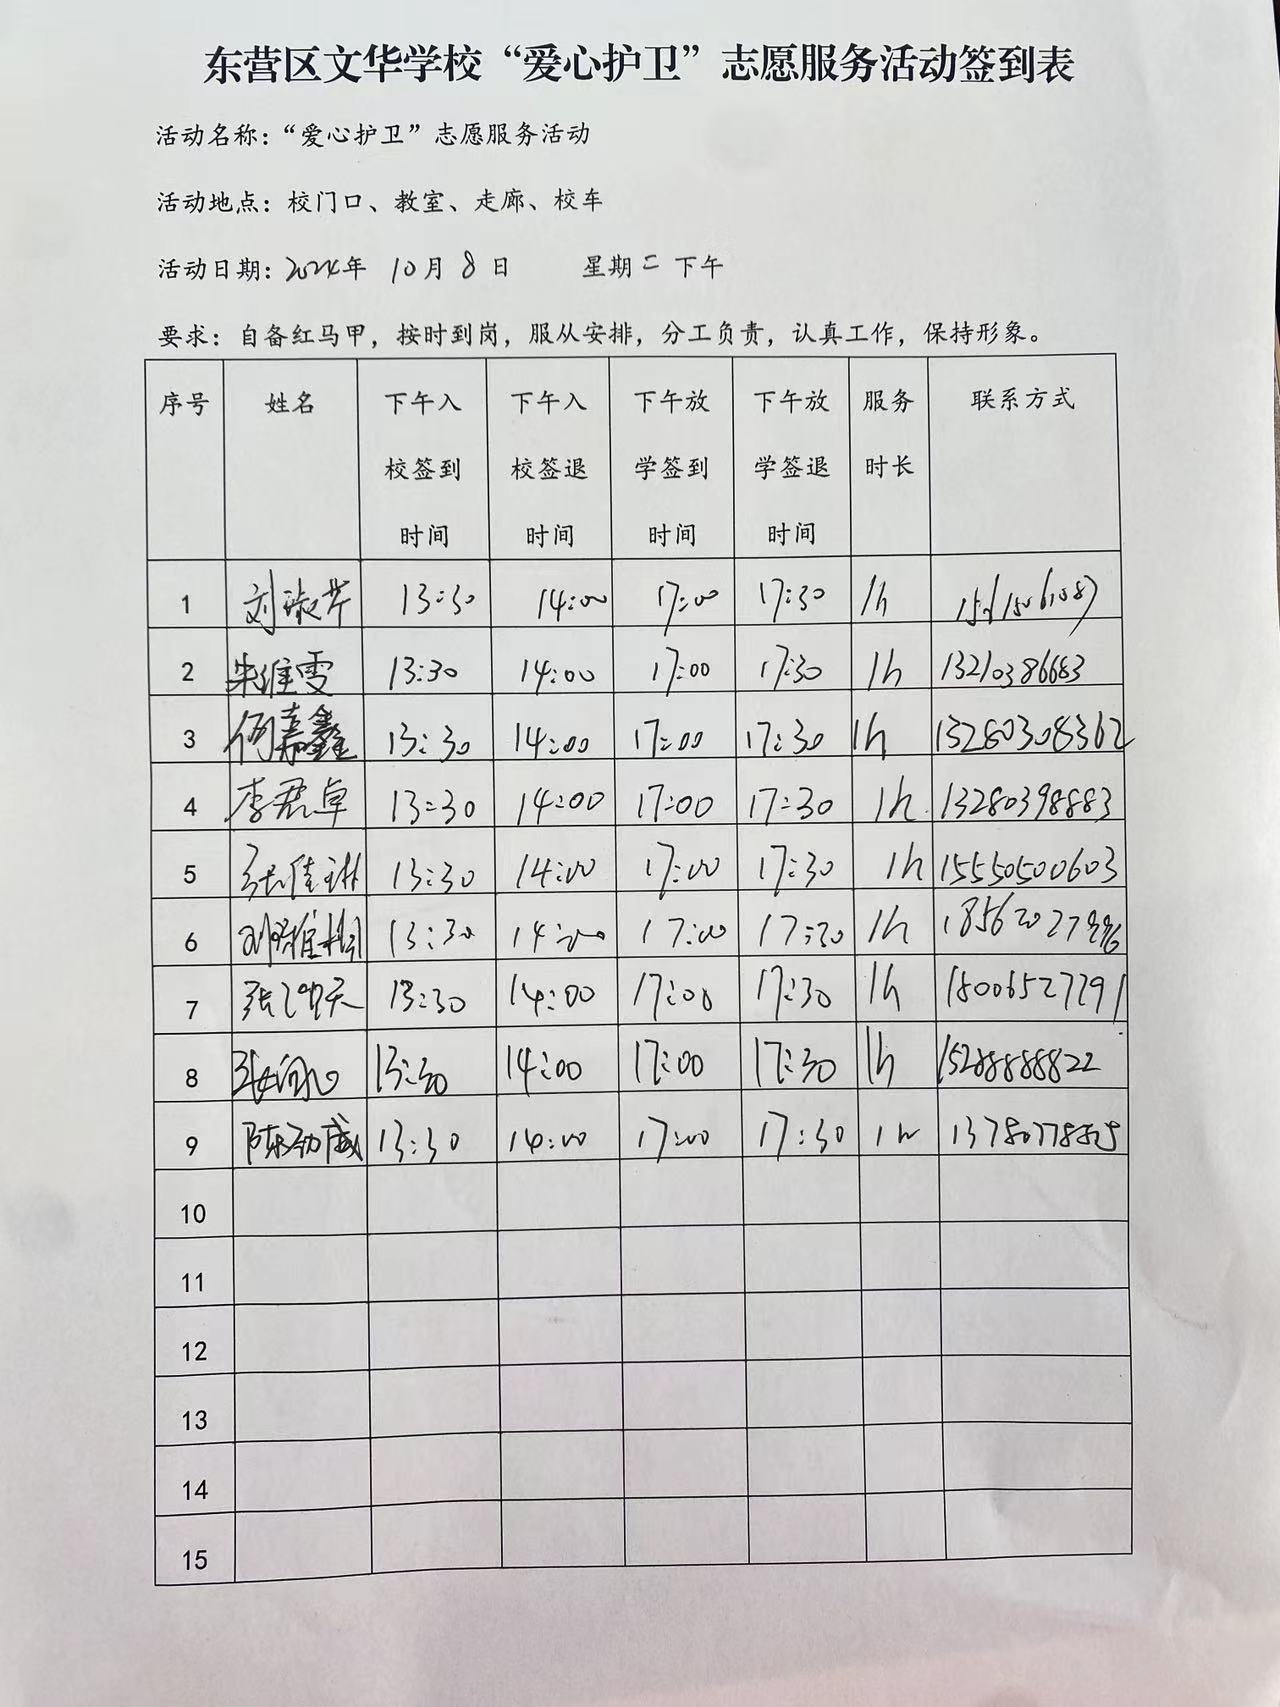 东营区文华学校“爱心护卫”志愿服务活动签到表
活动名称：“爱心护卫”志愿服务活动
活动地点：校门口、教室、走廊、校车
活动日期：2024年 10月 8日 星期二 下午
要求：自备红马甲，按时到岗，服从安排，分工负责，认真工作，保持形象。
序号 姓名 下午入校签到时间 下午入校签退时间 下午放学签到时间 下午放学签退时间 服务时长 联系方式
1 刘淑芹 13:30 14:00 17:00 17:30 1h
2 朱维雯 13:30 14:00 17:00 17:30 1h 13210386683
3 何嘉鑫 13:30 14:00 17:00 17:30 1h 13280308362
4 李君卓 13:30 14:00 17:00 17:30 1h 13280398883
5 张佳琳 13:30 14:00 17:00 17:30 1h 15550500603
6 13:30 14:00 17:00 17:30 1h
7 13:30 14:00 17:00 17:30 1h 18006527791
8 13:30 14:00 17:00 17:30 1h 15288888822
9 陈劲威 13:30 14:00 17:00 17:30 1h
10
11
12
13
14
15